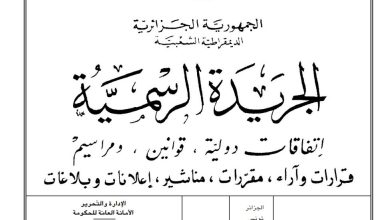 الجمهورية الجزائرية
الديمقراطية الشعبية
الجريدة الرسمية
اتفاقات دولية، قوانين، ومراسيم
قرارات وآراء، مقررات، مناشير، إعلانات وبلاغات
الجزائر
تونس
الإدارة والتحرير
الأمانة العامة للحكومة